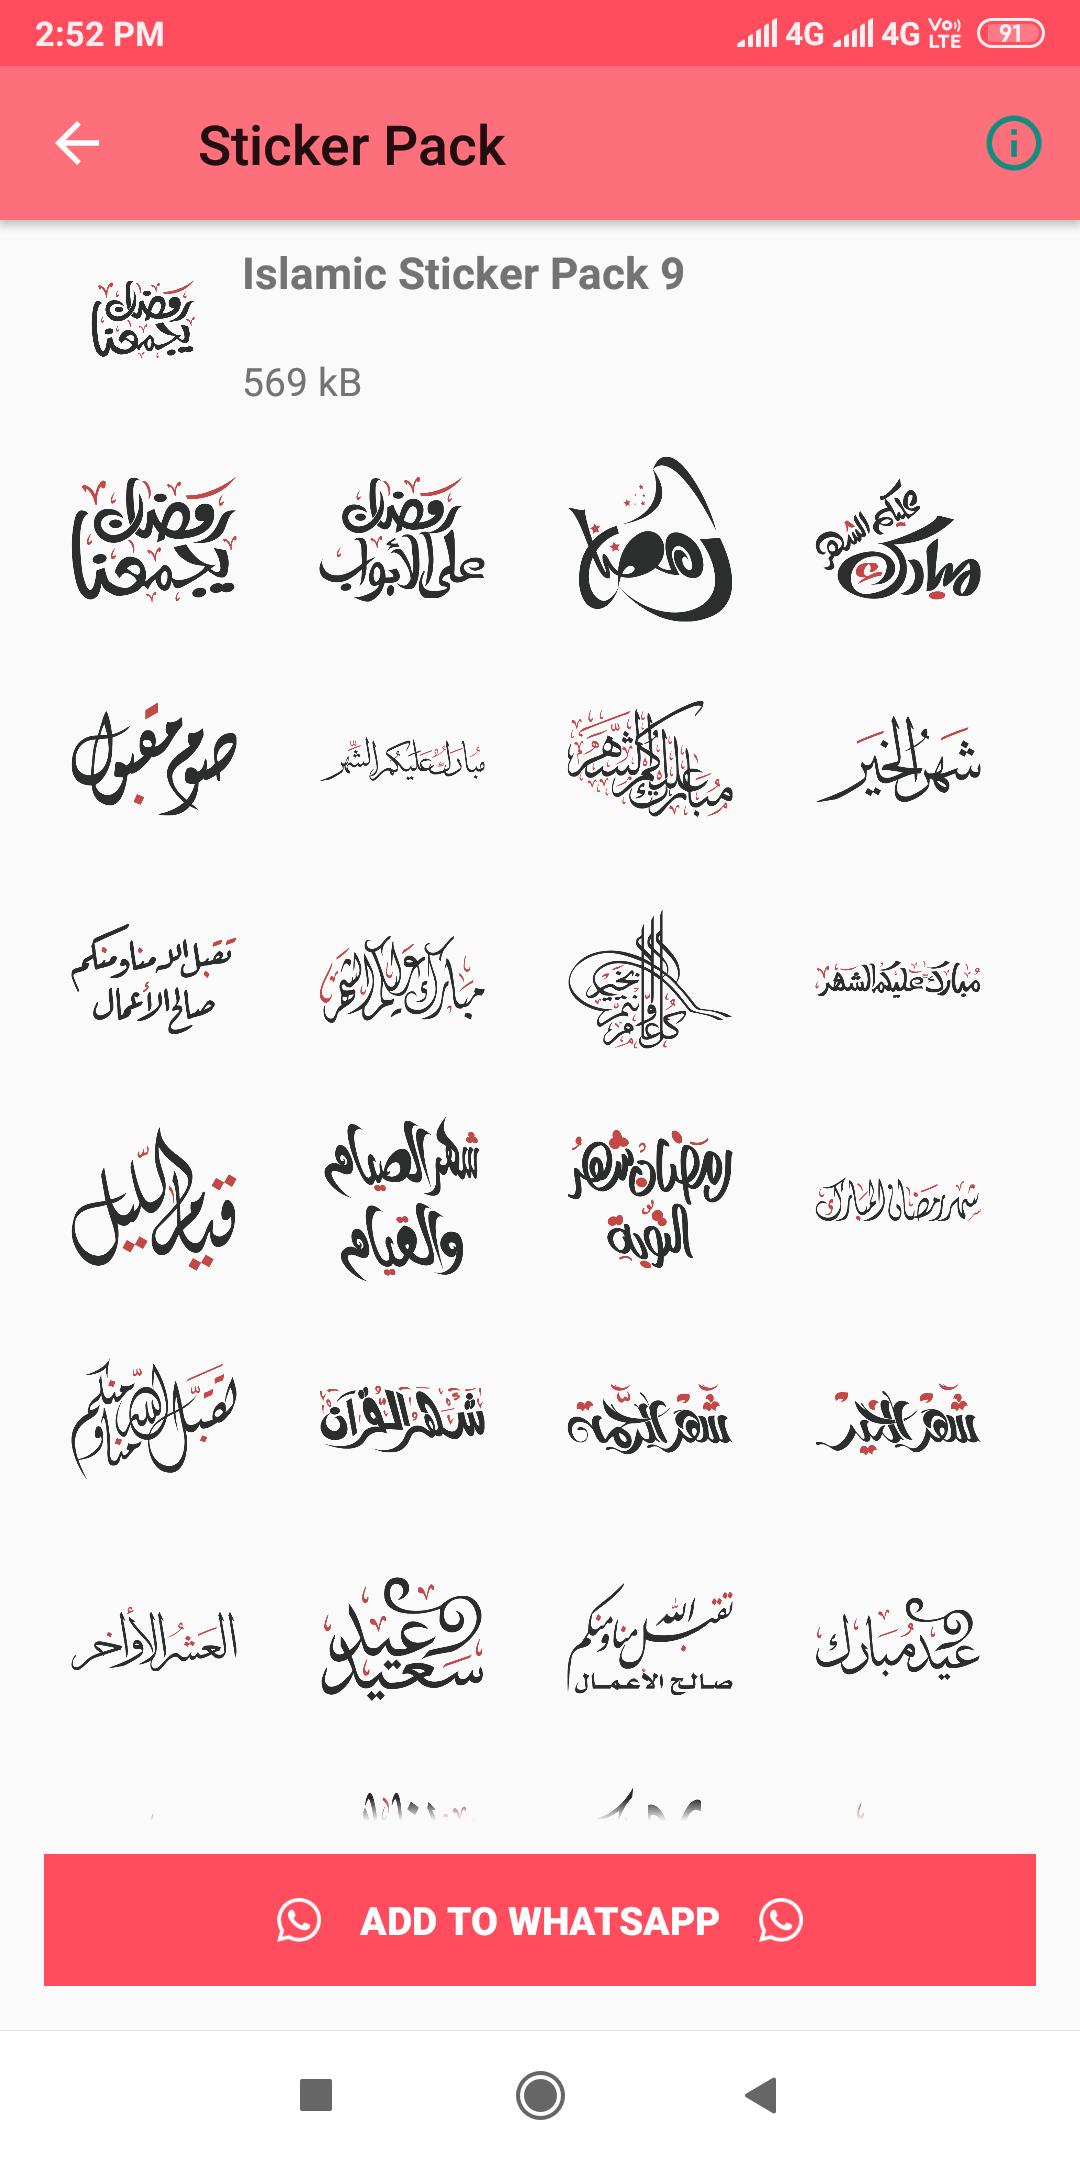 2:52 PM
4G 4G VoLTE 91
Sticker Pack
Islamic Sticker Pack 9
569 kB
رمضان
يجمعنا
رمضان
على الأبواب
رمضان
مبارك عليكم الشهر
صوم مقبول
مُبارك عليكم الشهر
مُبارك عليكم الشَّهر
شَهرُ الخَير
تقبل الله منا ومنكم
صالح الأعمال
مبارك عليكم الشهر
كل عام وأنتم بخير
مُبارك عليكم الشهر
قيام الليل
شهر الصيام
والقيام
رمضان شهر
التوبة
شهر رمضان المبارك
تقبل الله منا ومنكم
شهر القرآن
شهر الرحمة
شهر الخير
العشر الأواخر
عيد
سعيد
تقبل الله منا ومنكم
صالح الأعمال
عيد مبارك
ADD TO WHATSAPP